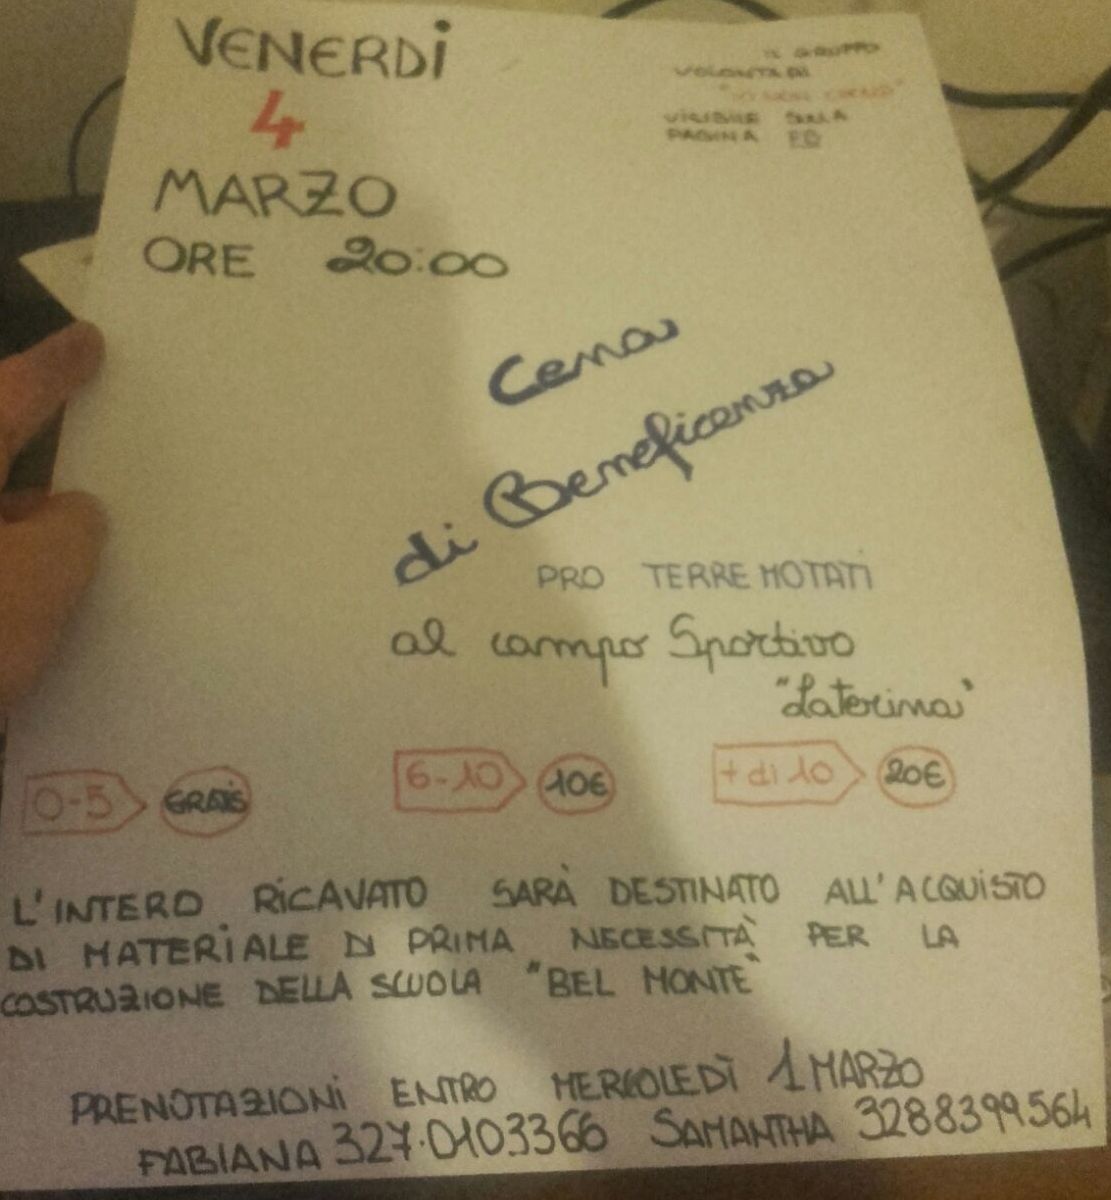 VENERDì
4
MARZO
ORE 20:00
IL GRUPPO
VOLONTA DI
"IO NON CRALLO"
VISIBILE SULLA
PAGINA FB
Cena
di Beneficenza
PRO TERREMOTATI
al campo Sportivo
"Laterina"
0-5 GRATIS 6-10 10€ + di 10 20€
L'INTERO RICAVATO SARÀ DESTINATO ALL'ACQUISTO
DI MATERIALE DI PRIMA NECESSITÀ PER LA
COSTRUZIONE DELLA SCUOLA "BEL MONTE"
PRENOTAZIONI ENTRO MERCOLEDÌ 1 MARZO
FABIANA 327.0103366 SAMANTHA 3288399564